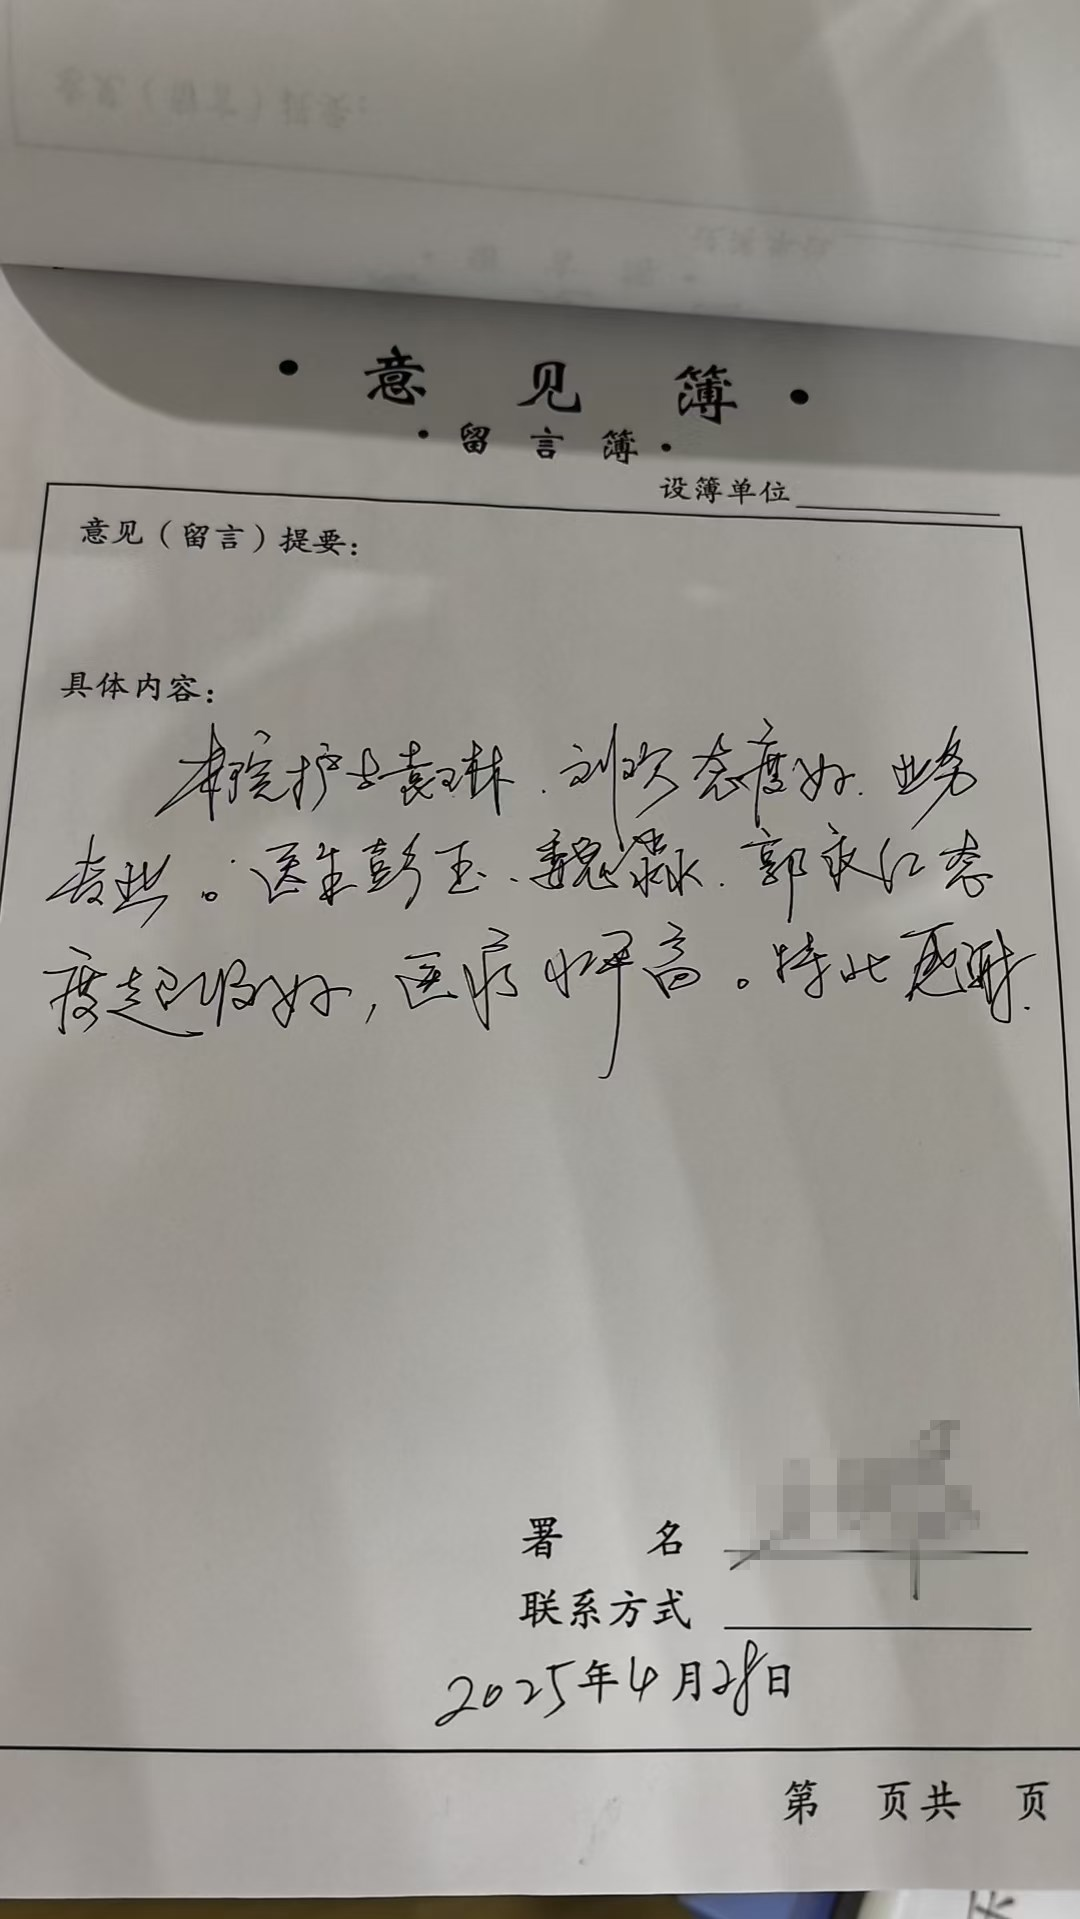 • 意见簿 •
• 留言簿 •
设簿单位
意见（留言）提要：
具体内容：
本院护士袁琳、刘欢态度好、业务
专业。医生彭玉、魏淼、郭永江态
度超级好，医疗水平高。特此感谢.
署 名
联系方式
2025年4月28日
第 页共 页